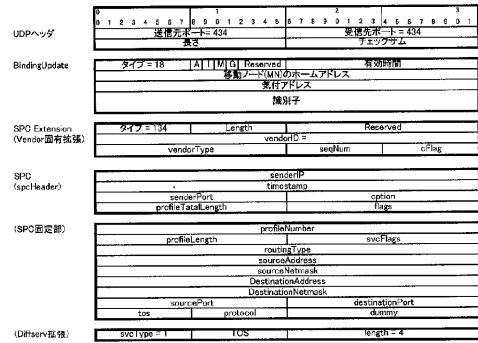 0 1 2 3
0 1 2 3 4 5 6 7 8 9 0 1 2 3 4 5 6 7 8 9 0 1 2 3 4 5 6 7 8 9 0 1
UDPヘッダ 送信元ポート= 434 受信元ポート= 434
長さ チェックサム
BindingUpdate タイプ = 18 A I M G Reserved 有効時間
移動ノード(MN)のホームアドレス
気付アドレス
識別子
SPC Extension タイプ = 134 Length Reserved
(Vendor固有拡張) vendorID =
vendorType seqNum cFlag
SPC senderIP
(spcHeader) timestamp
senderPort option
profileTatalLength flags
(SPC固定部) profileNumber
profileLength svcFlags
routingType
sourceAddress
sourceNetmask
DestinationAddress
DestinationNetmask
sourcePort destinationPort
tos protocol dummy
(Diffserv拡張) svcType = 1 TOS length = 4